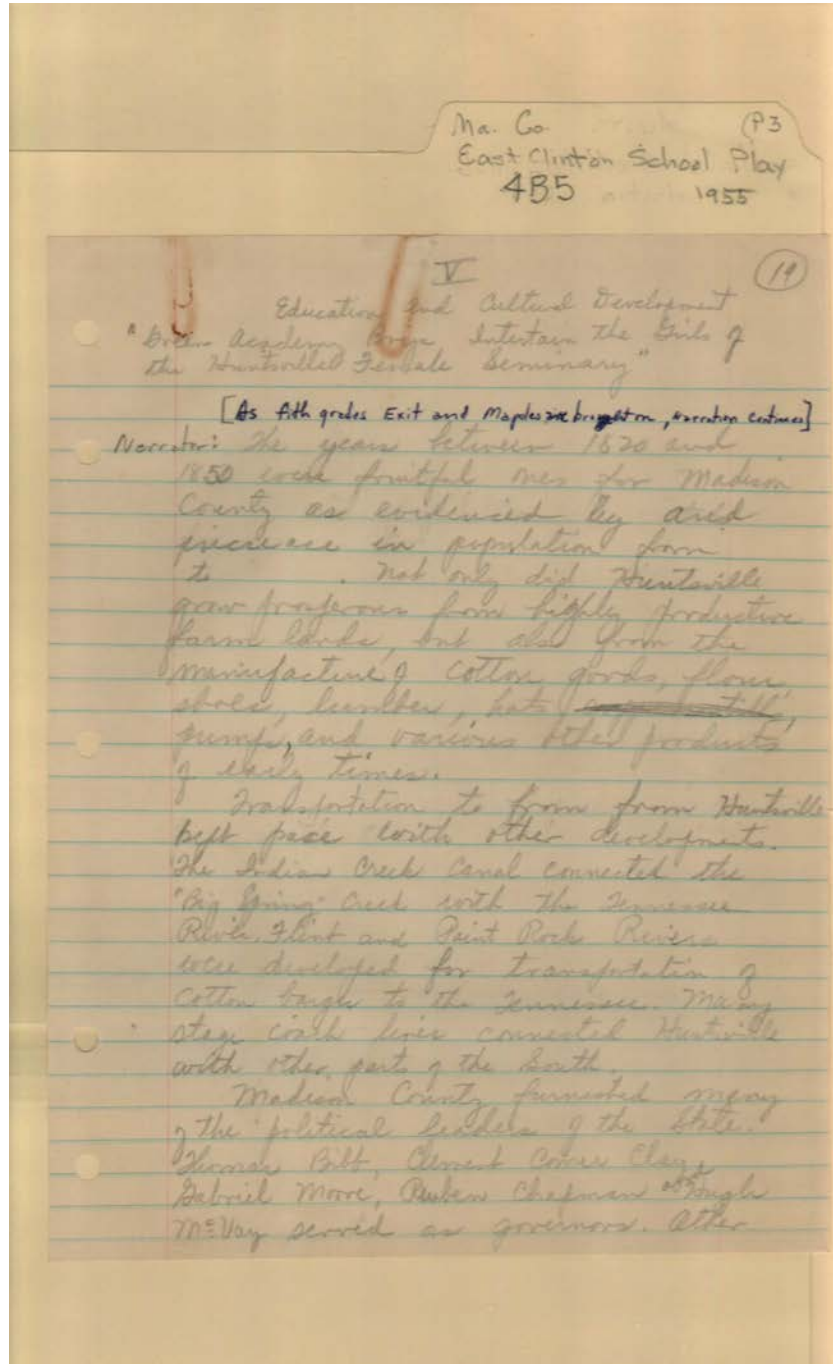 Ma. Co. P3
East Clinton School Play
4B5 1955
V 19
Education and Cultural Development
"Green Academy Boys Intertain the Girls of
the Huntsville Female Seminary"
[As fifth grades Exit and Maples are brought on, Narration continues]
Narrator: The years between 1820 and
1850 were fruitful ones for Madison
County as evidenced by
increase in population from
to . Not only did Huntsville
grow prosperous from highly productive
farm lands, but also from the
manufacture of cotton goods, flour,
shoes, lumber, hats,
pumps, and various other products
of early times.
Transportation to from from Huntsville
kept pace with other developments.
The Indian Creek Canal connected the
"Big Spring" Creek with the Tennessee
River. Flint and Paint Rock Rivers
were developed for transportation of
cotton barges to the Tennessee. Many
stage coach lines connected Huntsville
with other parts of the South.
Madison County furnished many
of the political leaders of the State.
Thomas Bibb, Clement Comer Clay,
Gabriel Moore, Reuben Chapman and Hugh
McVay served as governors. Other